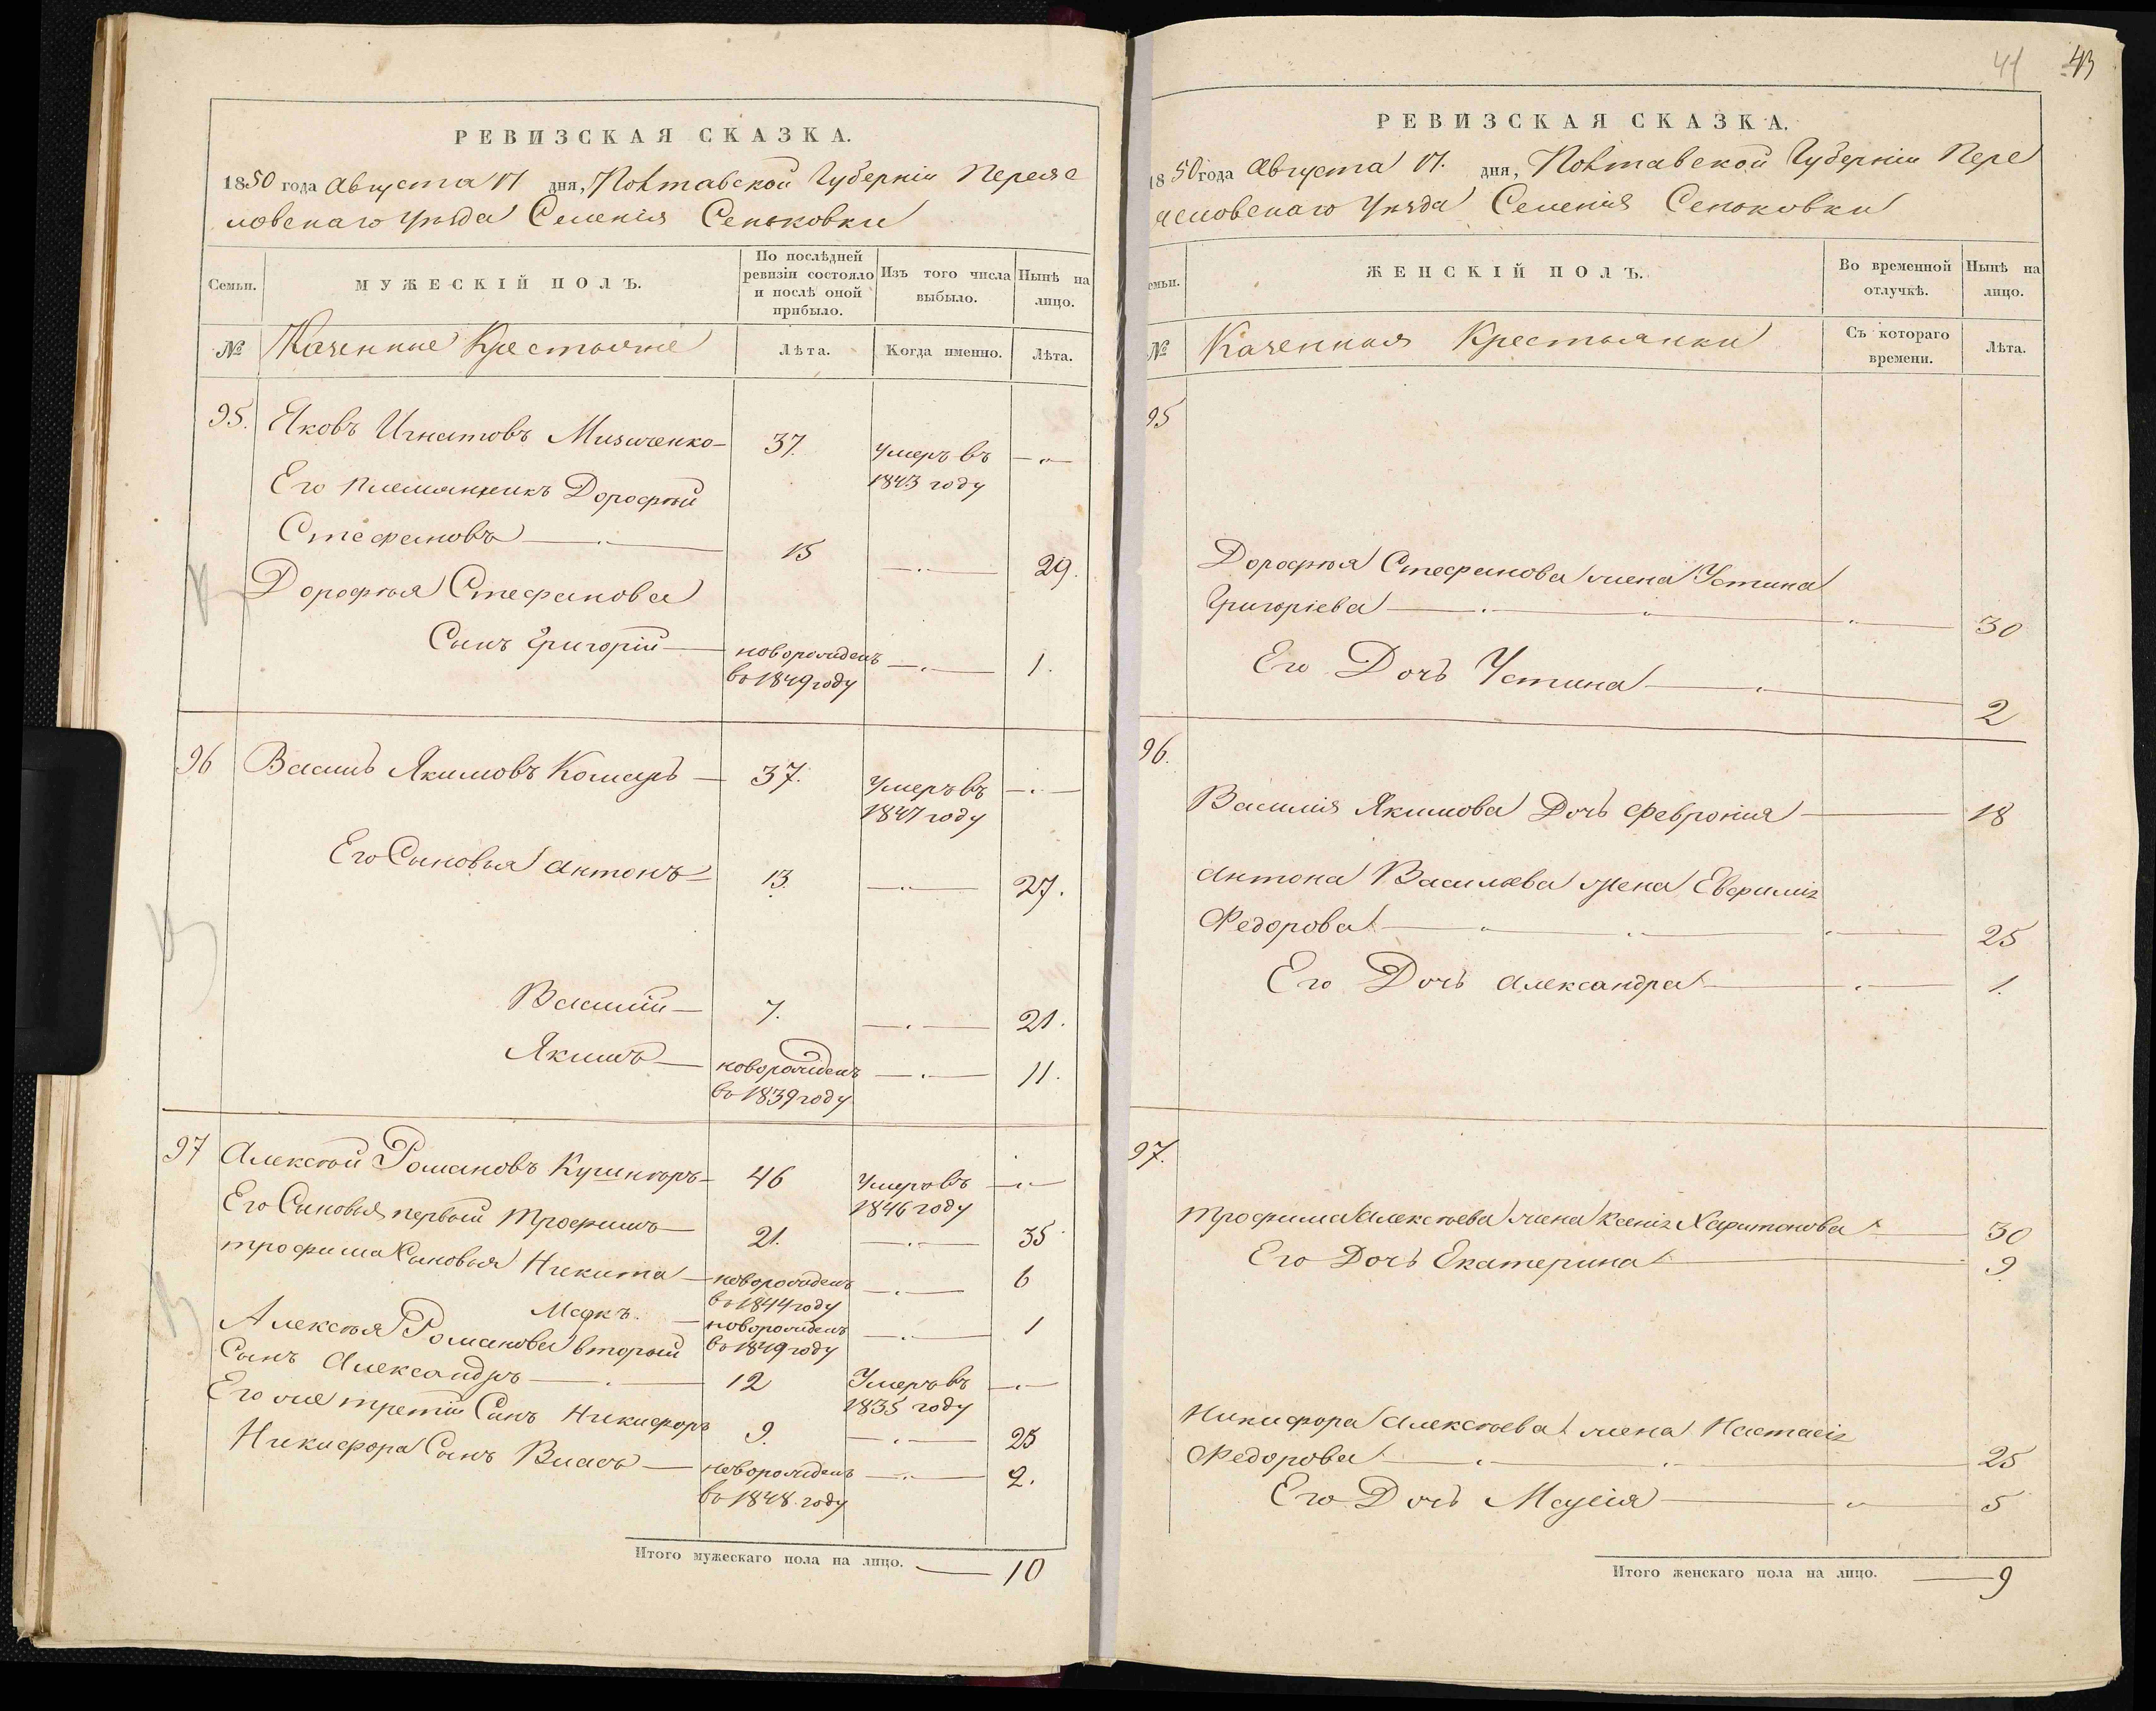 РЕВИЗСКАЯ СКАЗКА.
1850 года Августа 17 дня, Полтавской Губерніи Переяс
ловскаго Уѣзда Селенія Сеньковки
Семьи.
МУЖЕСКІЙ ПОЛЪ.
По послѣдней ревизіи состояло и послѣ оной прибыло.
Изъ того числа выбыло.
Нынѣ на лицо.
№ Казенные Крестьяне
Лѣта. Когда именно. Лѣта.
95. Яковъ Игнатовъ 37. Умеръ въ
1843 году
Его племянникъ Дорофѣй
Стефановъ 15 29.
Дорофѣя Стефанова
Сынъ Григорій новорожденъ 1.
въ 1849 году
96 Василь Якимовъ Комаръ 37. Умеръ въ
1847 году
Его Сыновья Антонъ 13. 27.
Василій 7. 21.
Якимъ новорожденъ 11.
въ 1839 году
97 Алексѣй Романовъ 46 Умеръ въ
1846 году
Его Сыновья первый Трофимъ 21. 35
Трофима Сыновья Никита новорожденъ 6
въ 1844 году
Маркъ. новорожденъ 1
въ 1849 году
Алексѣя Романова вторый
Сынъ Александръ 12 Умеръ въ
1835 году
Его же третій Сынъ Никифоръ 9. 25
Никифора Сынъ Власъ новорожденъ 2.
въ 1848 году
Итого мужескаго пола на лицо. 10
41 43
РЕВИЗСКАЯ СКАЗКА.
1850 года Августа 17. дня, Полтавской Губерніи Пере
ясловскаго Уѣзда Селенія Сеньковки
емьи.
ЖЕНСКІЙ ПОЛЪ.
Во временной отлучкѣ.
Нынѣ на лицо.
№ Казенныя Крестьянки
Съ котораго времени.
Лѣта.
95
Дорофѣя Стефанова жена Устина
Григоріева 30
Его Дочь Устина 2
96.
Василія Якимова Дочь Февронія 18
Антона Васильева жена Евфимія
Федорова 25
Его Дочь Александра 1.
97.
Трофима Алексѣева жена Ксенія Харитонова 30
Его Дочь Екатерина 9
Никифора Алексѣева жена Настасія
Федорова 25
Его Дочь Марія 5
Итого женскаго пола на лицо. 9